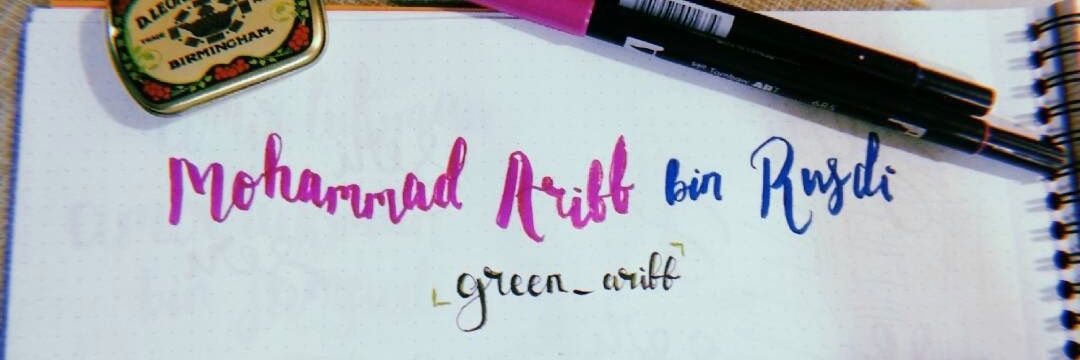 D. LEON
TRADE
BIRMINGHAM.
Tombow ABT
685
Mohammad Aribb bin Rusdi
green_aribb